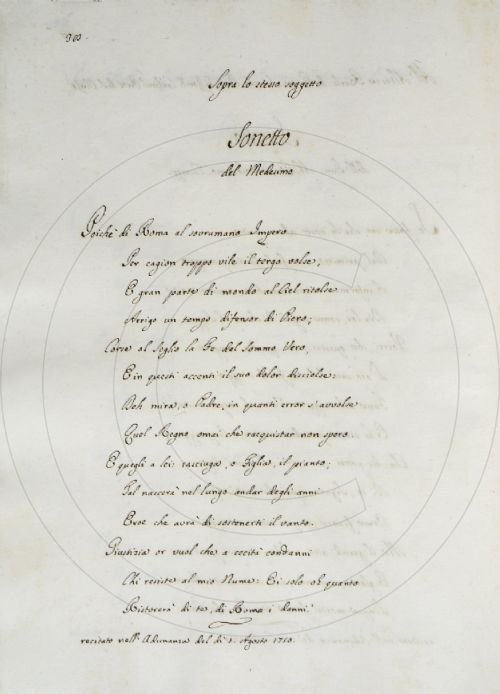 303.
Sopra lo stesso soggetto
Sonetto
del Medesimo
Poiché di Roma al sovrumano Impero
Per cagion troppo vile il tergo volse,
E gran parte di mondo al Ciel ritolse
Arrigo un tempo difensor di Piero;
Corse al Soglio la Fe del Sommo Vero,
E in questi accenti il suo dolor disciolse:
Deh mira, o Padre, in quanti error s'avvolse
Quel Regno omai che racquistar non spero
E quegli a lei: rasciuga, o Figlia, il pianto;
Tal nascerà nel lungo andar degli anni
Eroe che avrà di sostenerti il vanto.
Giustizia or vuol che a cecità condanni
Chi resiste al mio Nume: Ei solo oh quanto
Ristorerà di te, di Roma i danni
recitato nell'Adunanza del dì 1. Agosto 1710.